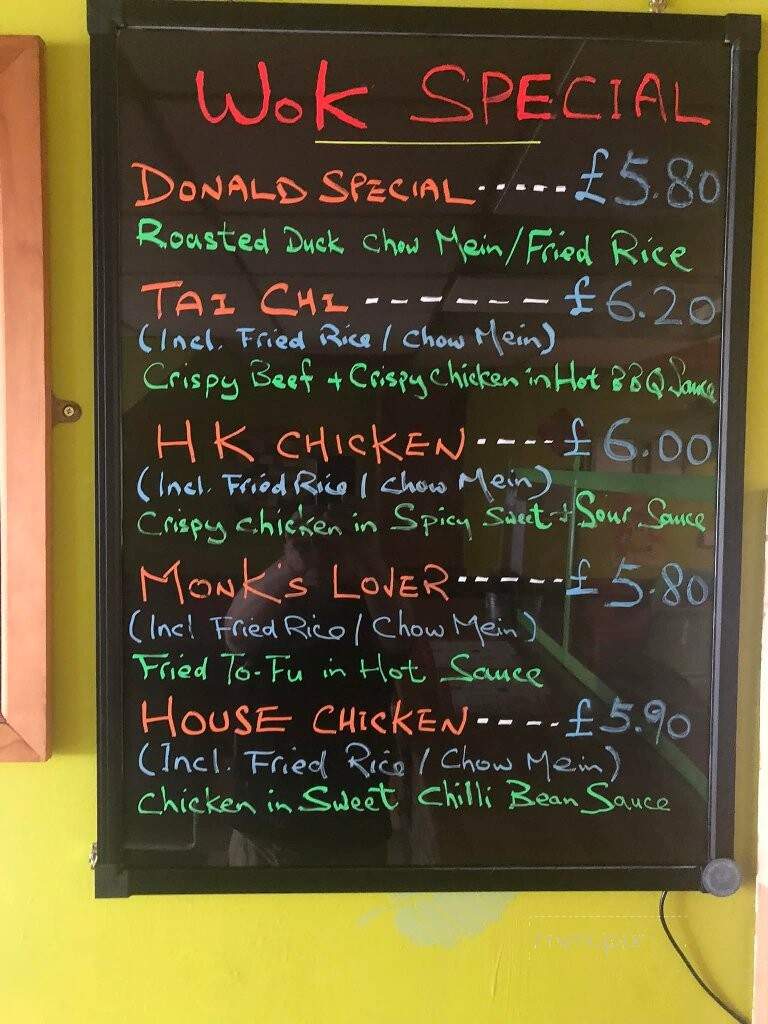 WOK SPECIAL
DONALD SPECIAL ----- £5.80
Roasted Duck Chow Mein/Fried Rice
TAI CHI ------- £6.20
(Incl. Fried Rice / Chow Mein)
Crispy Beef + Crispy Chicken in Hot BBQ Sauce
HK CHICKEN ---- £6.00
(Incl. Fried Rice / Chow Mein)
Crispy Chicken in Spicy Sweet + Sour Sauce
MONK'S LOVER ----- £5.80
(Incl Fried Rice / Chow Mein)
Fried To-Fu in Hot Sauce
HOUSE CHICKEN ---- £5.90
(Incl. Fried Rice / Chow Mein)
Chicken in Sweet Chilli Bean Sauce